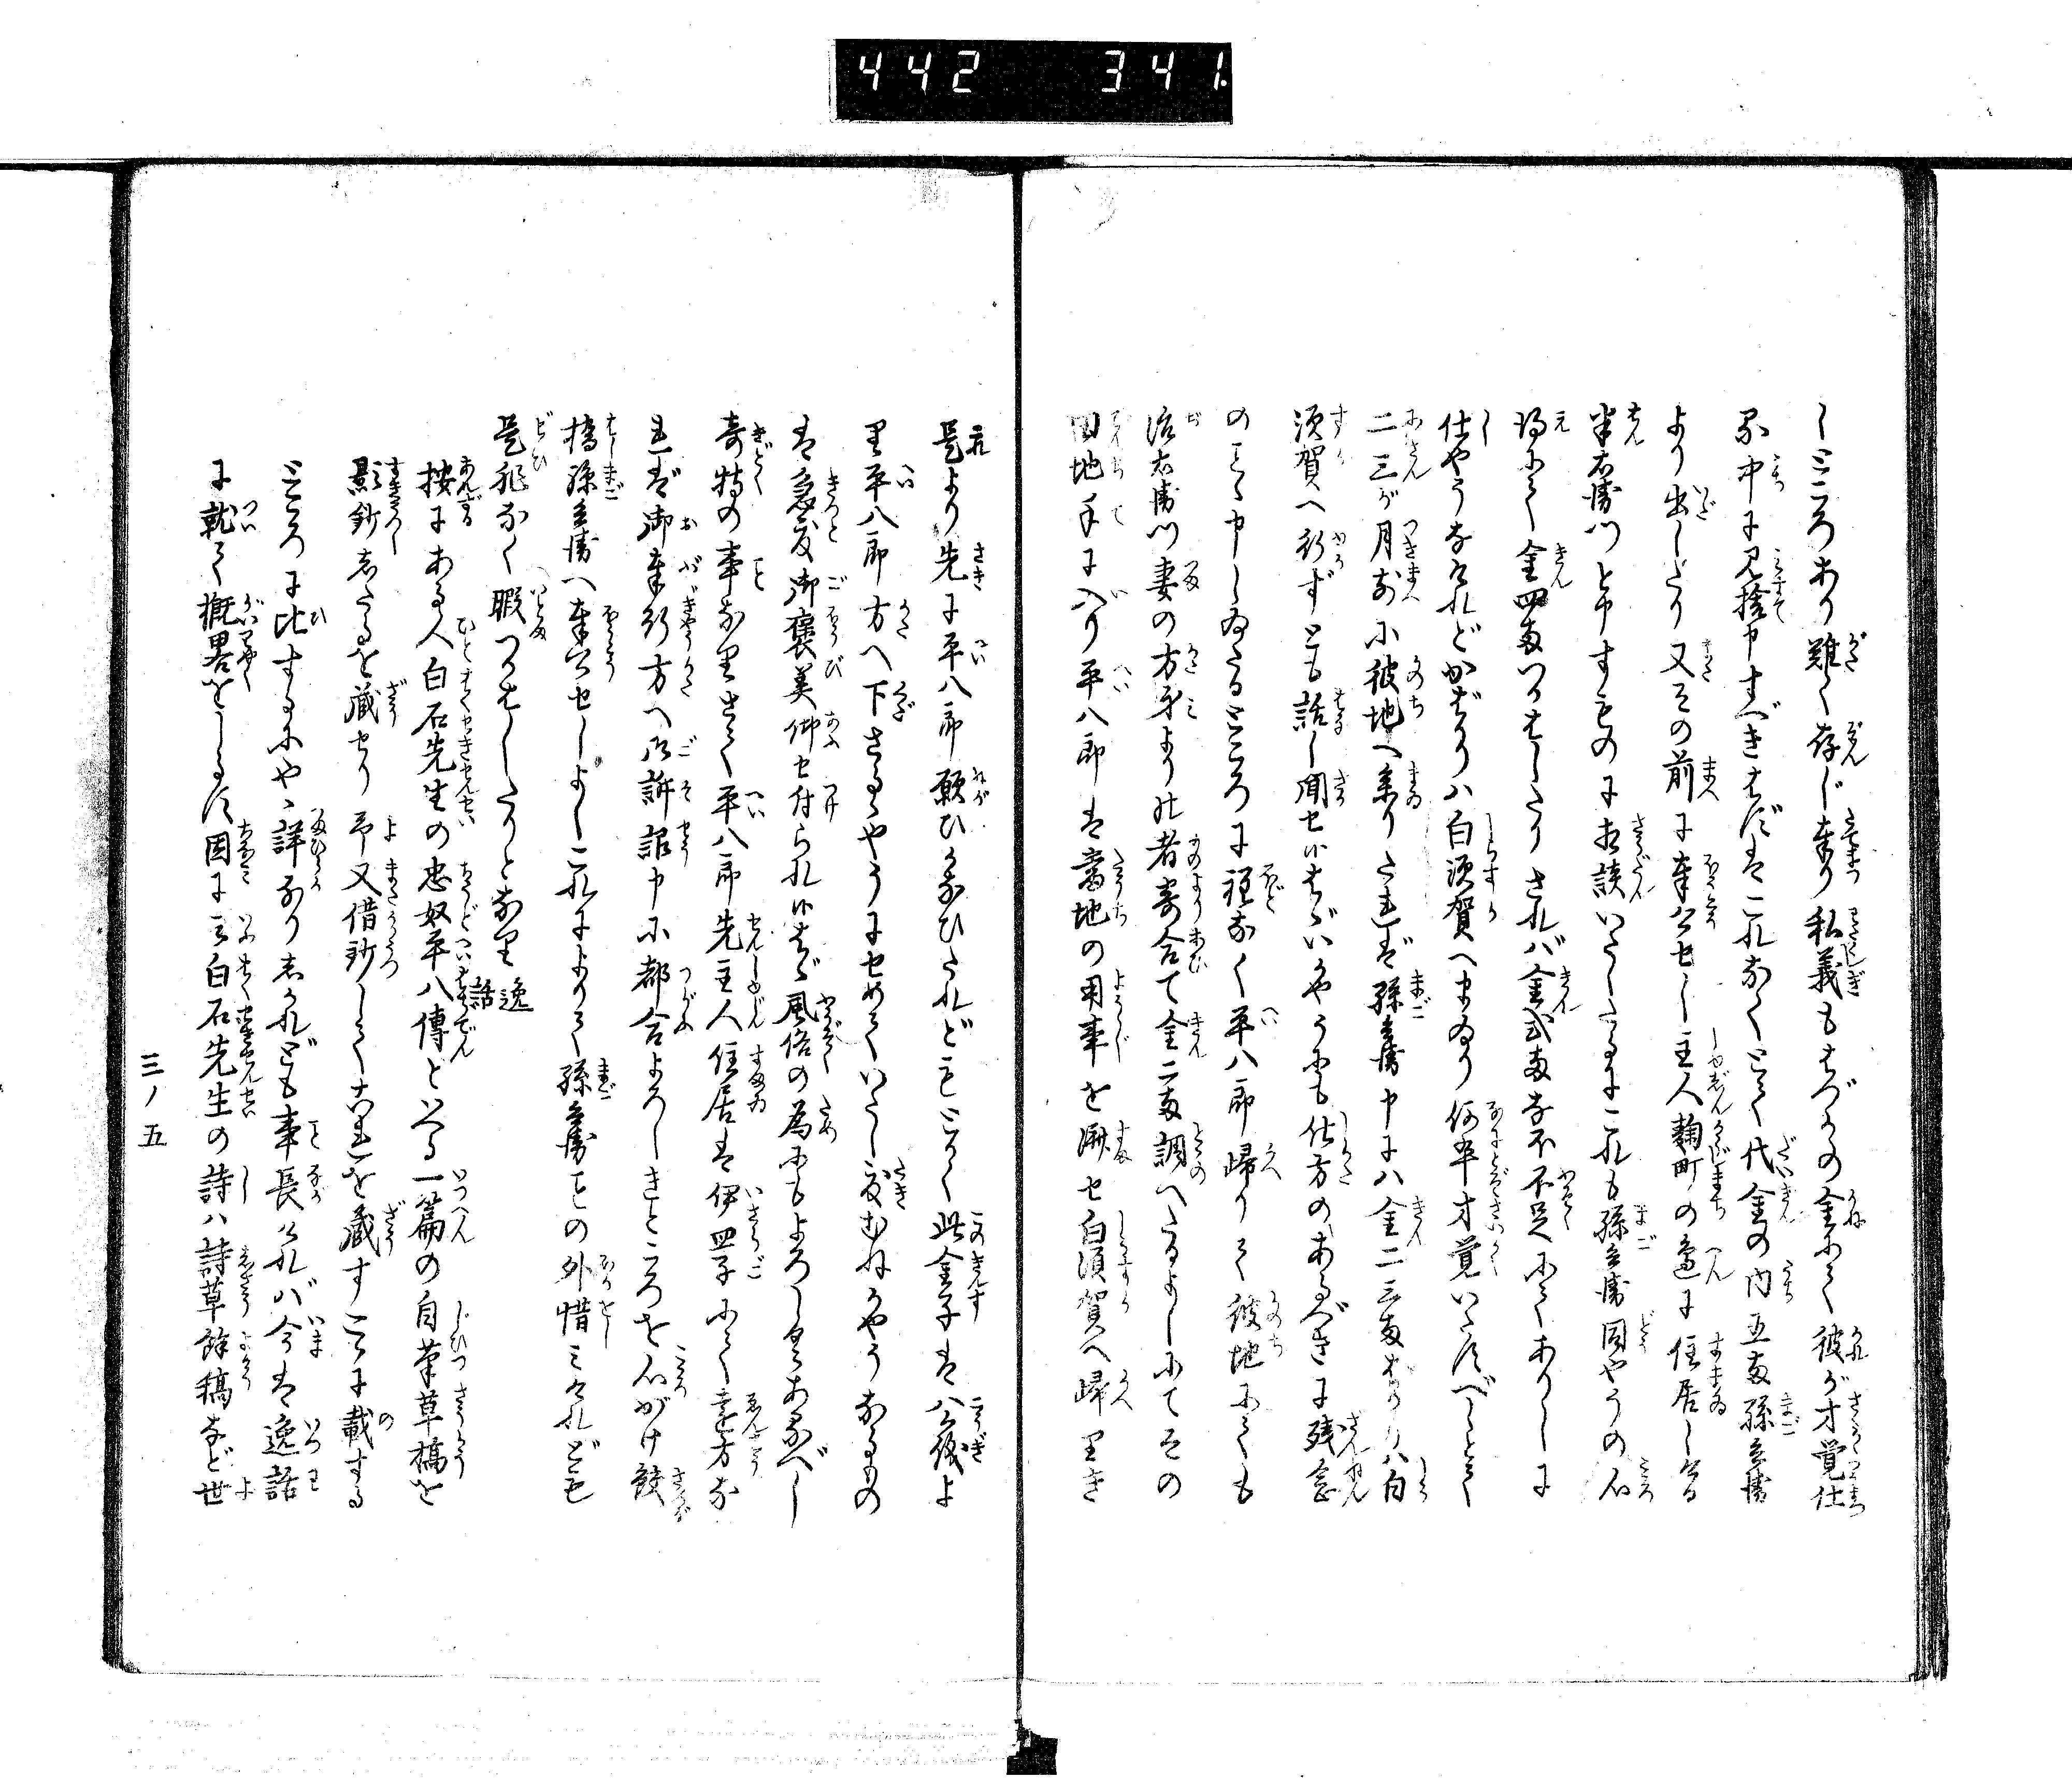 442 341.
しところあり難く存じ奉り私義もはづかの金にて彼が才覚仕
る中に見捨申すべきはずはこれなくとて代金の内五両孫兵衛
より出したり又その前に奉公せし主人麹町の邊に住居しける
半右衛門と申すものに相談いたしたるにこれも孫兵衛同やうの心
得にて金四両つかはしたりされバ金弐両など不足にてありしに
仕やうなけれどかばかりハ白須賀へまゐり何卒才覚いたすべしとて
二三が月前に彼地へ参りたれば孫兵衛申にハ金二三両ばかりハ白
須賀へ行ずとも話し聞せ候はゞいかやうにも仕方のあるべきに残念
のこと申しゐたるところに程なく平八郎帰りて彼地にても
治右衛門妻の方身よりの者寄合て金二両調へたるよしにてその
田地手に入り平八郎は当地の用事を済せ白須賀へ帰りき
是より先に平八郎願ひかなひたれどもとかく此金子は公儀よ
り平八郎方へ下さるゝやうにせめていたし度むねかやうなるもの
は急度御褒美仰せ付られ候はゞ風俗の為にもよろしくあるべし
奇特の事なりさて平八郎先主人住居は伊皿子にて遠方な
れば御奉行方へ御訴詔申に都合よろしきところを心がけ鮫
橋孫兵衛へ奉公せしよしこれによりて孫兵衛ことの外惜みけれども
是非なく暇つかはしたりとなり 逸話
按にある人白石先生の忠奴平八傳といへる一篇の自筆草稿を
影鈔したるを蔵せり予又借鈔してこれを蔵すこゝに載する
ところに比するにやゝ詳なりしかれども事長ければ今は逸話
に就て概畧をしるす因に云白石先生の詩ハ詩草餘稿など世
三ノ五